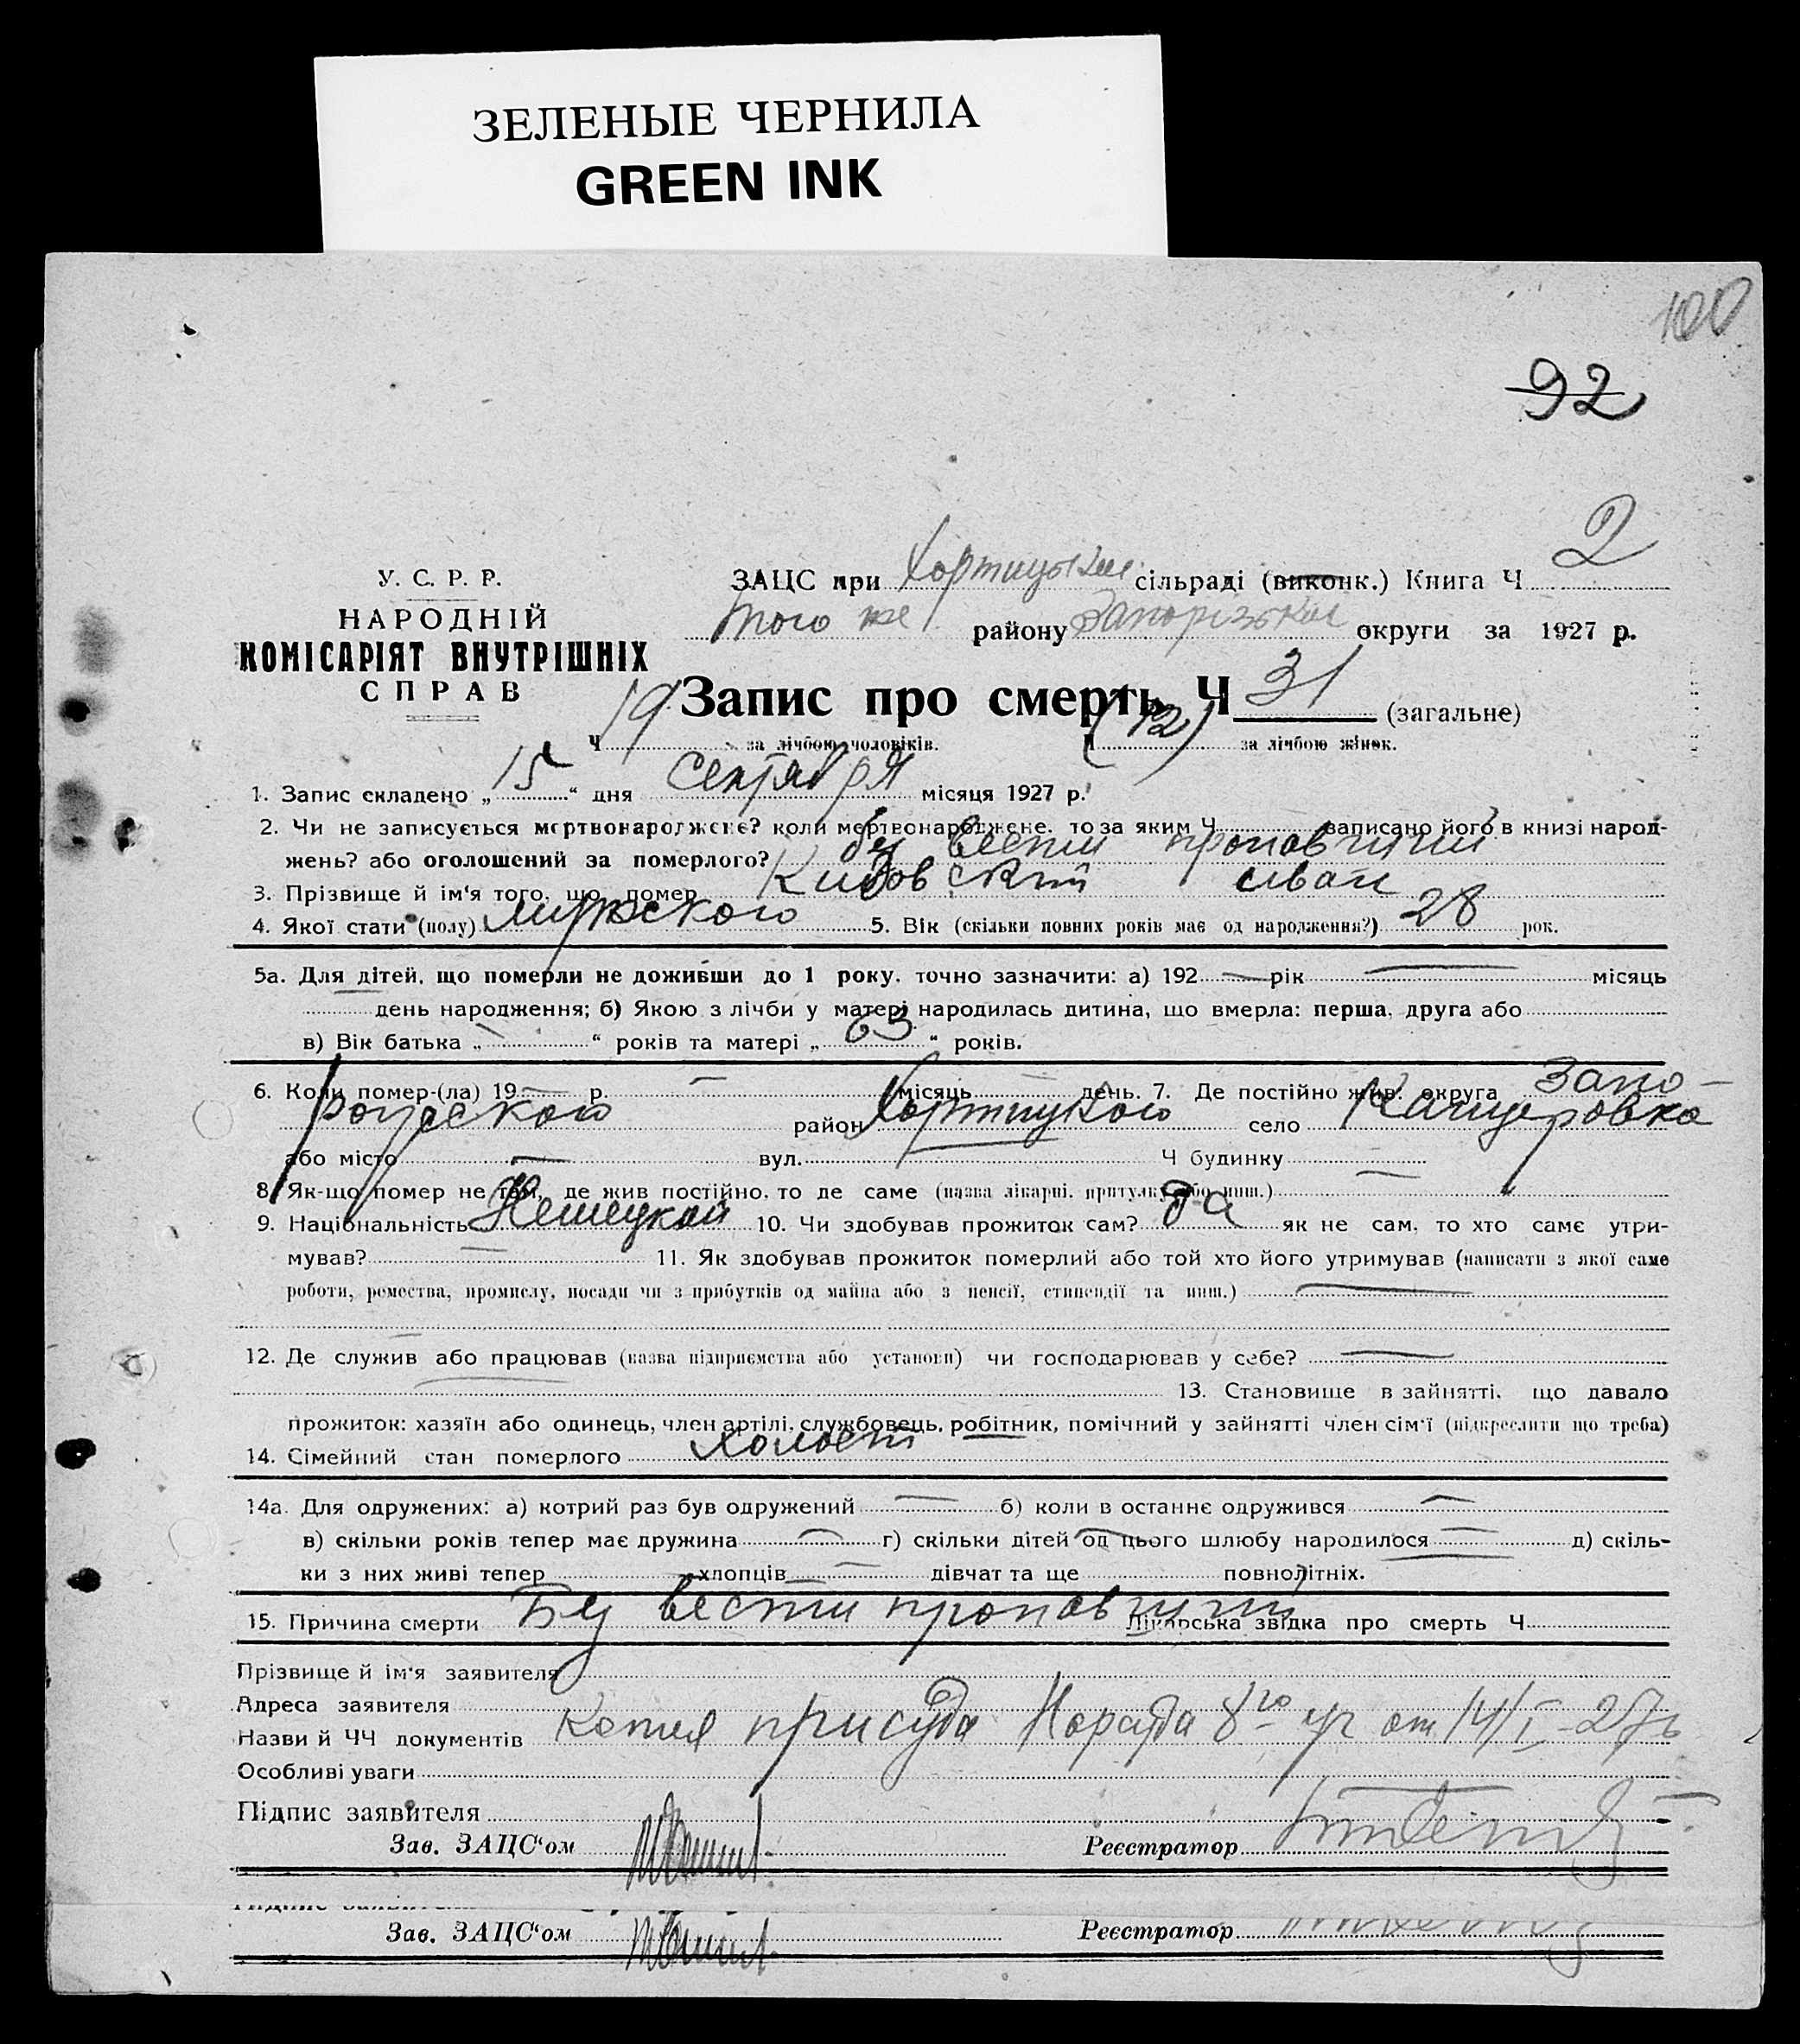 ЗЕЛЕНЫЕ ЧЕРНИЛА
GREEN INK
100
92
У. С. Р. Р.
НАРОДНІЙ
КОМІСАРІЯТ ВНУТРІШНІХ
СПРАВ
ЗАЦС при Хортицьким сільраді (виконк.) Книга Ч 2
того же району Запорізькой округи за 1927 р.
Запис про смерть Ч 31 (загальне)
Ч 19 за лічбою чоловіків. Ч (12) за лічбою жінок.
1. Запис складено „ 15 “ дня Сентября місяця 1927 р.
2. Чи не записується мертвонароджене? коли мертвонароджене, то за яким Ч записано його в книзі народ-
жень? або оголошений за померлого? без вести пропавший
3. Прізвище й ім'я того, що помер Иван
4. Якої стати (полу) Мужского 5. Вік (скільки повних років має од народження?) 28 рок.
5а. Для дітей, що померли не доживши до 1 року, точно зазначити: а) 192 — рік — місяць
— день народження; б) Якою з лічби у матері народилась дитина, що вмерла: перша, друга або
в) Вік батька „ — “ років та матері „ 63 “ років.
6. Коли помер-(ла) 19 — р. — місяць — день. 7. Де постійно жив: округа Запо-
рожского район Хортицкого село Канцеровка
або місто — вул. Ч будинку —
8. Як-що помер не там, де жив постійно, то де саме (назва лікарні, притулку або инш.)
9. Національність Немецкой 10. Чи здобував прожиток сам? да як не сам, то хто саме утри-
мував? — 11. Як здобував прожиток померлий або той хто його утримував (написати з якої саме
роботи, ремества, промислу, посади чи з прибутків од майна або з пенсії, стипендії та инш.) —
12. Де служив або працював (назва підприємства або установи) чи господарював у себе? —
13. Становище в зайнятті, що давало
прожиток: хазяїн або одинець, член артілі, службовець, робітник, помічний у зайнятті член сім'ї (підкреслити що треба)
14. Сімейний стан померлого холост
14а. Для одружених: а) котрий раз був одружений — б) коли в останнє одружився —
в) скільки років тепер має дружина — г) скільки дітей од цього шлюбу народилося — д) скіль-
ки з них живі тепер хлопців — дівчат та ще повнолітніх.
15. Причина смерти Без вести пропавший Лікарська звідка про смерть Ч
Прізвище й ім'я заявителя
Адреса заявителя
Назви й ЧЧ документів Копия присуда Нарсуда 8го уч от 14/I-27
Особливі уваги
Підпис заявителя
Зав. ЗАЦС'ом Реєстратор
Зав. ЗАЦС'ом Реєстратор